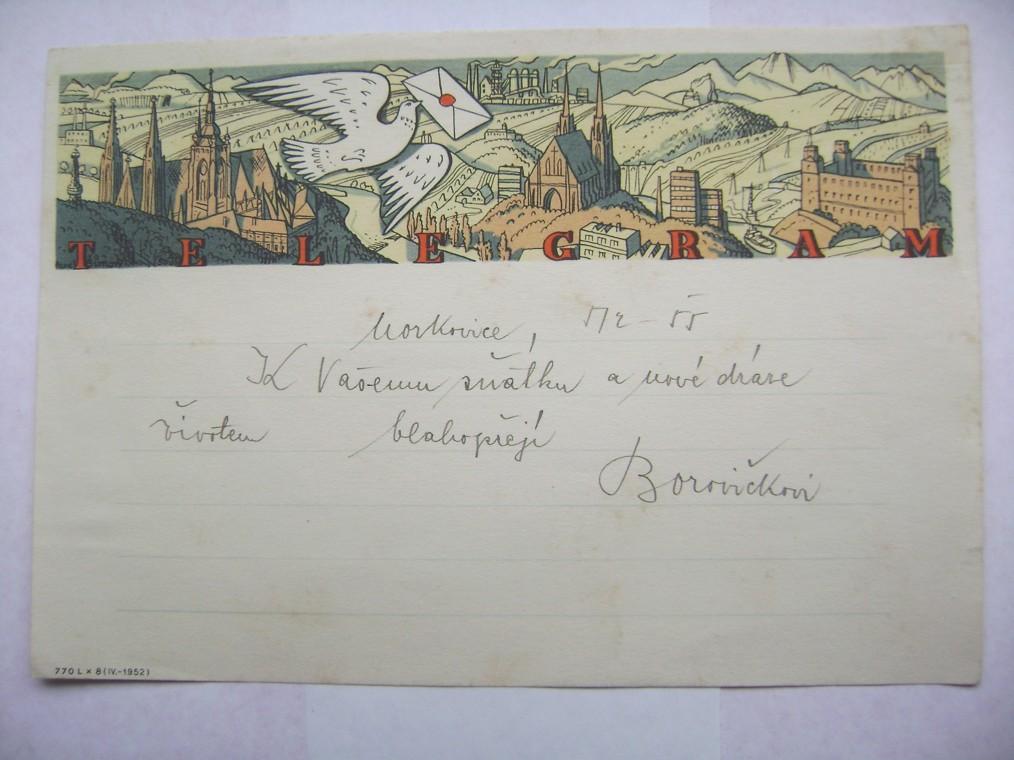 TELEGRAM
Morkovice, 5/12 - 55
K Vašemu sňatku a nové dráze
životem blahopřejí
Borovičkovi
770 L × 8 (IV.-1952)